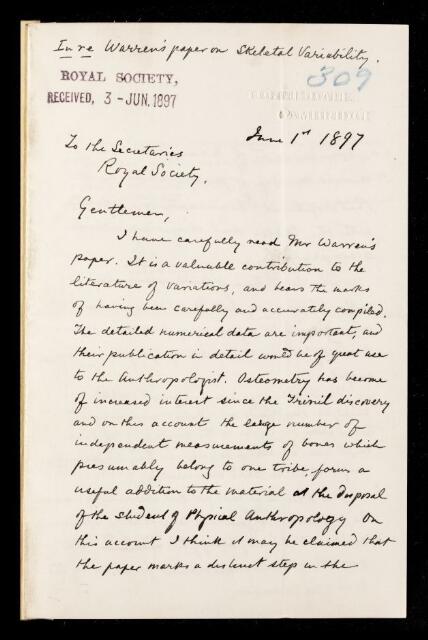 In re Warren's paper on Skeletal Variability.
309
ROYAL SOCIETY,
RECEIVED, 3-JUN. 1897
CAMBRIDGE
June 1st 1897
To the Secretaries
Royal Society.
Gentlemen,
I have carefully read Mr Warren's
paper. It is a valuable contribution to the
literature of variations, and bears the marks
of having been carefully and accurately compiled.
The detailed numerical data are important, and
their publication in detail would be of great use
to the Anthropologist. Osteometry has become
of increased interest since the Trinil discovery
and on this account the large number of
independent measurements of bones which
presumably belong to one tribe, form a
useful addition to the material at the disposal
of the student of Physical Anthropology On
this account I think it may be claimed that
the paper marks a distinct step in the